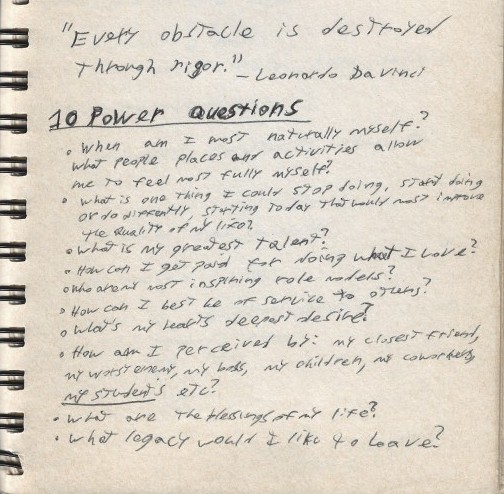 "Every obstacle is destroyed
through rigor." – Leonardo Da Vinci
10 Power Questions
• When am I most naturally myself?
What people places and activities allow
me to feel most fully myself?
• What is one thing I could stop doing, start doing
or do differently, starting today that would most improve
the quality of my life?
• What is my greatest talent?
• How can I get paid for doing what I love?
• Who are my most inspiring role models?
• How can I best be of service to others?
• What's my heart's deepest desire?
• How am I perceived by: my closest friend,
my worst enemy, my boss, my children, my coworkers,
my student's etc?
• What are the blessings of my life?
• What legacy would I like to leave?